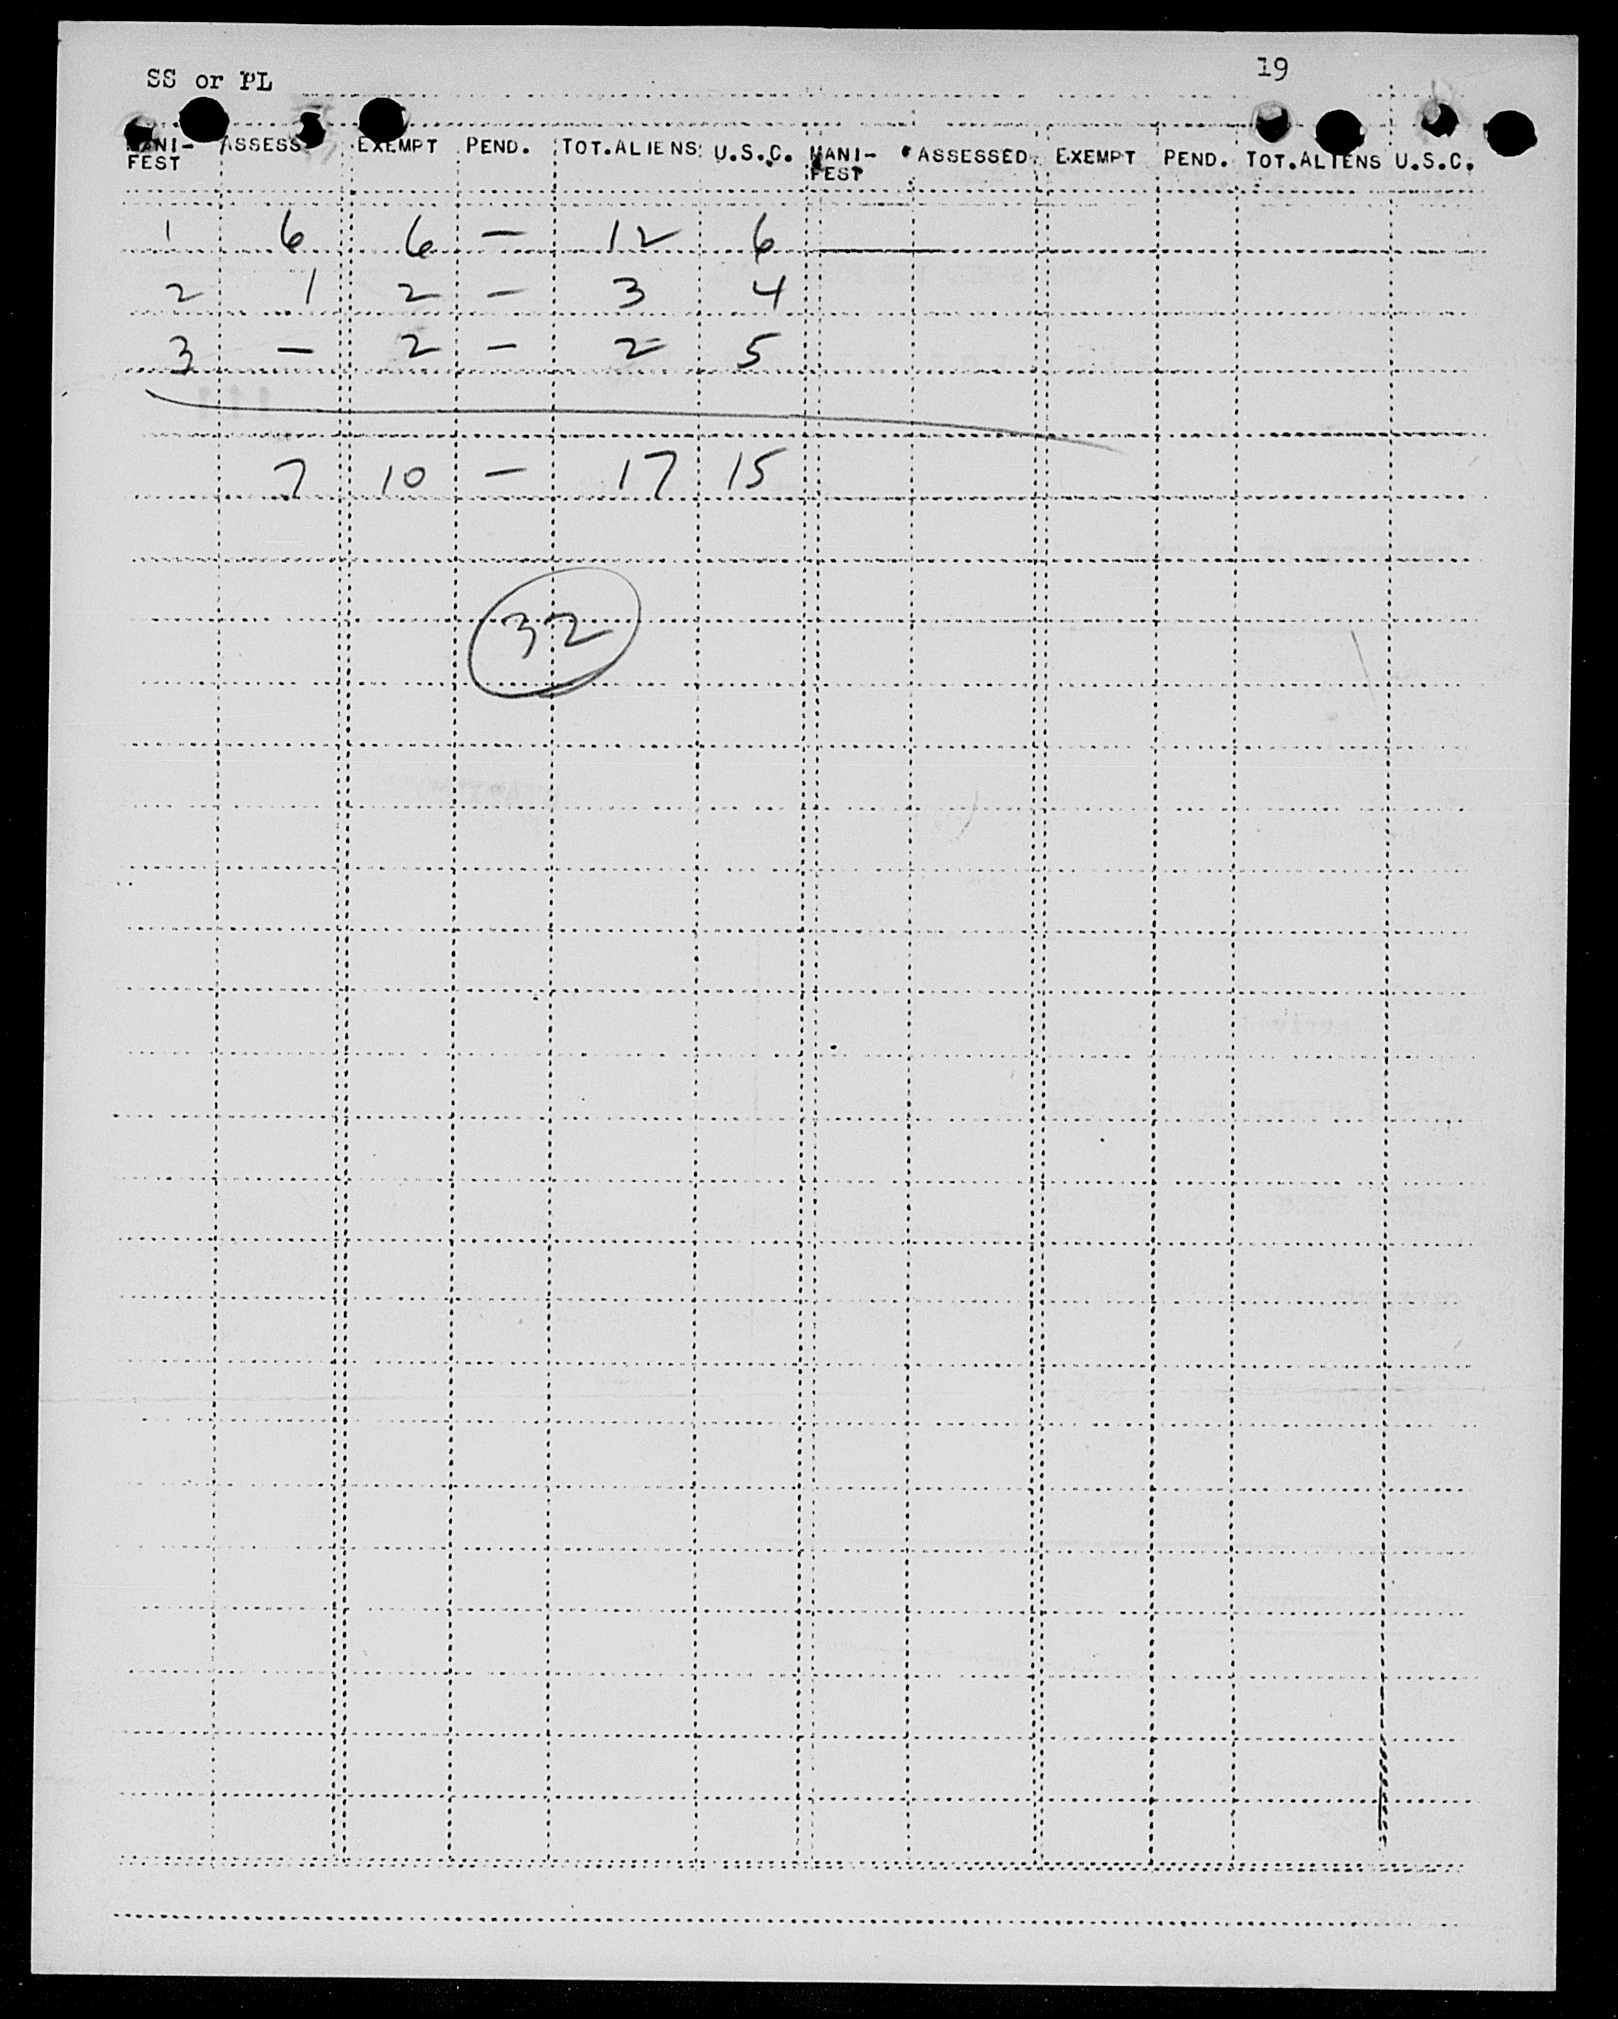 SS or PL 19
MANI- ASSESS EXEMPT PEND. TOT.ALIENS U.S.C. MANI- ASSESSED EXEMPT PEND. TOT.ALIENS U.S.C.
FEST FEST
1 6 6 — 12 6
2 1 2 — 3 4
3 — 2 — 2 5
7 10 — 17 15
32